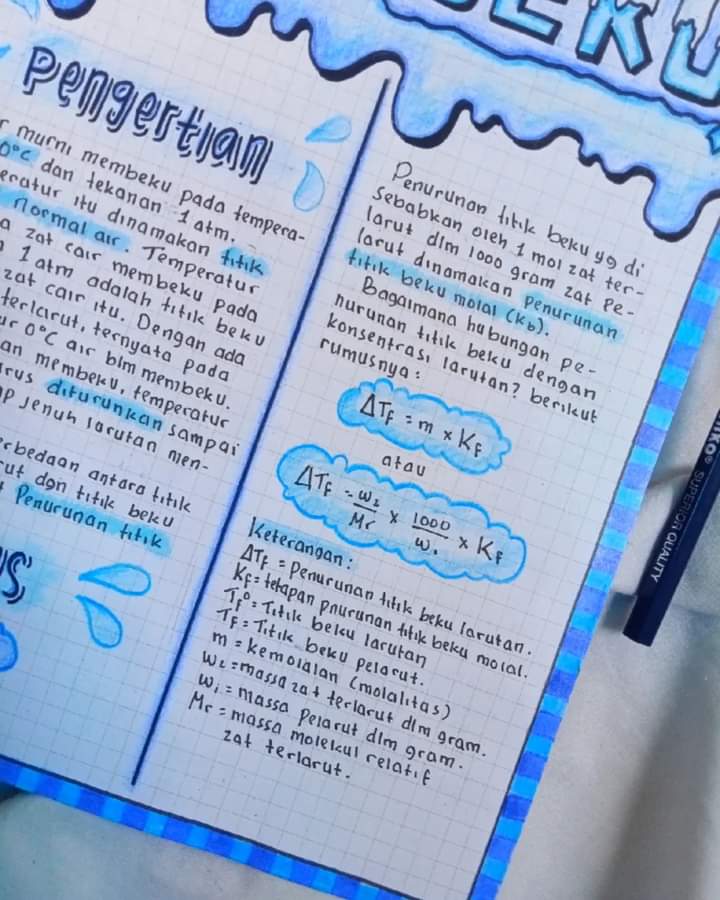 BEKU
Pengertian
r murni membeku pada tempera-
0°C dan tekanan 1 atm.
eratur itu dinamakan titik
normal air. Temperatur
a zat cair membeku pada
1 atm adalah titik beku
zat cair itu. Dengan ada
terlarut, ternyata pada
ur 0°C air blm membeku.
an membeku, temperatur
rus diturunkan sampai
p jenuh larutan men-
erbedaan antara titik
rut dgn titik beku
t Penurunan titik
us
Penurunan titik beku yg di
sebabkan oleh 1 mol zat ter-
larut dlm 1000 gram zat pe-
larut dinamakan penurunan
titik beku molal (Kb).
Bagaimana hubungan pe-
nurunan titik beku dengan
konsentrasi larutan? berikut
rumusnya:
ΔTF = m x KF
atau
ΔTF = W2/Mr x 1000/W1 x KF
Keterangan:
ΔTF = Penurunan titik beku larutan.
KF = tetapan pnurunan titik beku molal.
TF° = Titik beku larutan
TF = Titik beku pelarut.
m = kemolalan (molalitas)
W2 = massa zat terlarut dlm gram.
W1 = massa pelarut dlm gram.
Mr = massa molekul relatif
zat terlarut.
SUPERIOR QUALITY